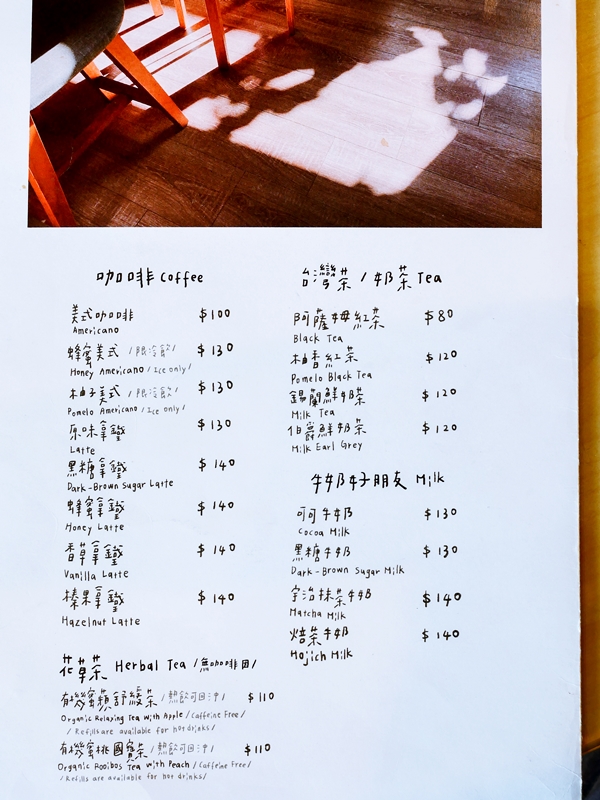 咖啡 Coffee
美式咖啡 $100
Americano
蜂蜜美式 /限冷飲/ $130
Honey Americano / Ice only/
柚子美式 /限冷飲/ $130
Pomelo Americano / Ice only/
原味拿鐵 $130
Latte
黑糖拿鐵 $140
Dark-Brown Sugar Latte
蜂蜜拿鐵 $140
Honey Latte
香草拿鐵 $140
Vanilla Latte
榛果拿鐵 $140
Hazelnut Latte
花草茶 Herbal Tea /無咖啡因/
有機蜜蘋舒緩茶 /熱飲可回沖/ $110
Organic Relaxing Tea with Apple / Caffeine Free/
/ Refills are available for hot drinks/
有機蜜桃國寶茶 /熱飲可回沖/ $110
Organic Rooibos Tea with Peach / Caffeine Free/
/Refills are available for hot drinks/
台灣茶 / 奶茶 Tea
阿薩姆紅茶 $80
Black Tea
柚香紅茶 $120
Pomelo Black Tea
錫蘭鮮奶茶 $120
Milk Tea
伯爵鮮奶茶 $120
Milk Earl Grey
牛奶好朋友 Milk
可可牛奶 $130
Cocoa Milk
黑糖牛奶 $130
Dark-Brown Sugar Milk
宇治抹茶牛奶 $140
Matcha Milk
焙茶牛奶 $140
Hojich Milk